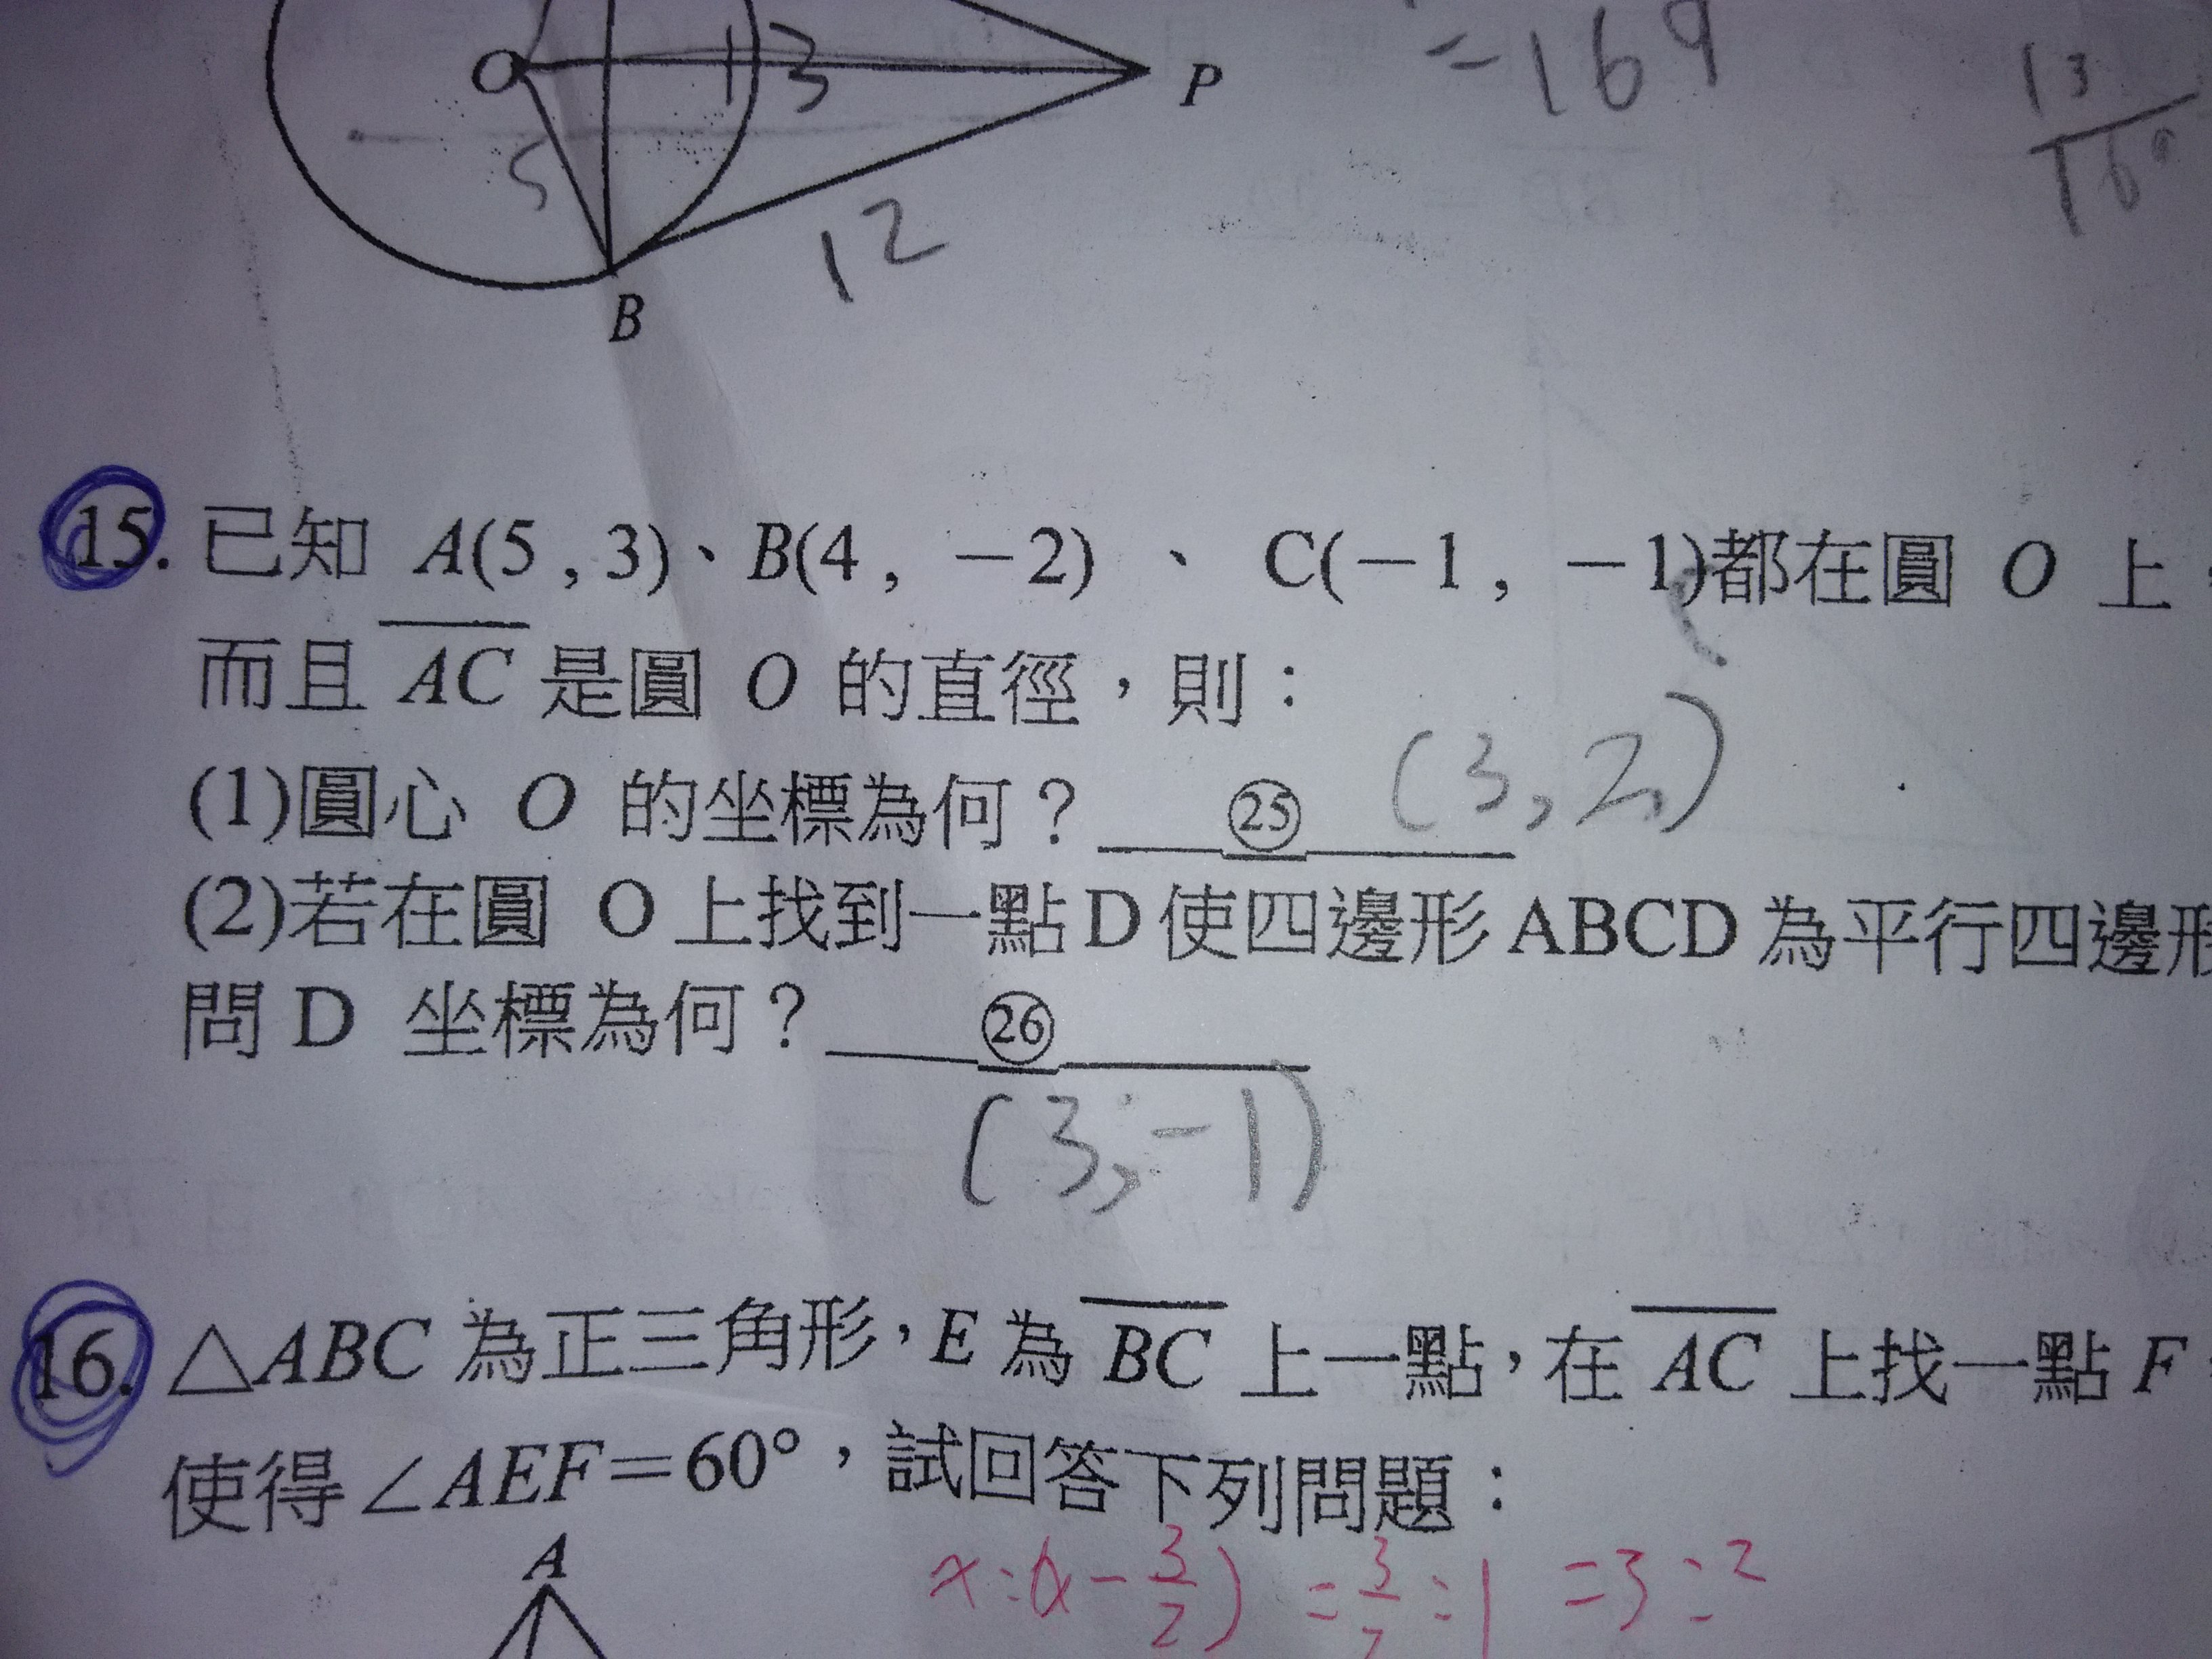 = 169
13
169
O 13 P
5
12
B
15. 已知 A(5 , 3)、B(4 , －2) 、 C(－1 , －1)都在圓 O 上
而且 AC 是圓 O 的直徑，則：
(1)圓心 O 的坐標為何？ ㉕ (3, 2)
(2)若在圓 O 上找到一點 D 使四邊形 ABCD 為平行四邊形
問 D 坐標為何？ ㉖
(3, -1)
16. △ABC 為正三角形，E 為 BC 上一點，在 AC 上找一點 F
使得∠AEF＝60°，試回答下列問題：
A
x:(x-3/2) = 3/2:1 =3:2